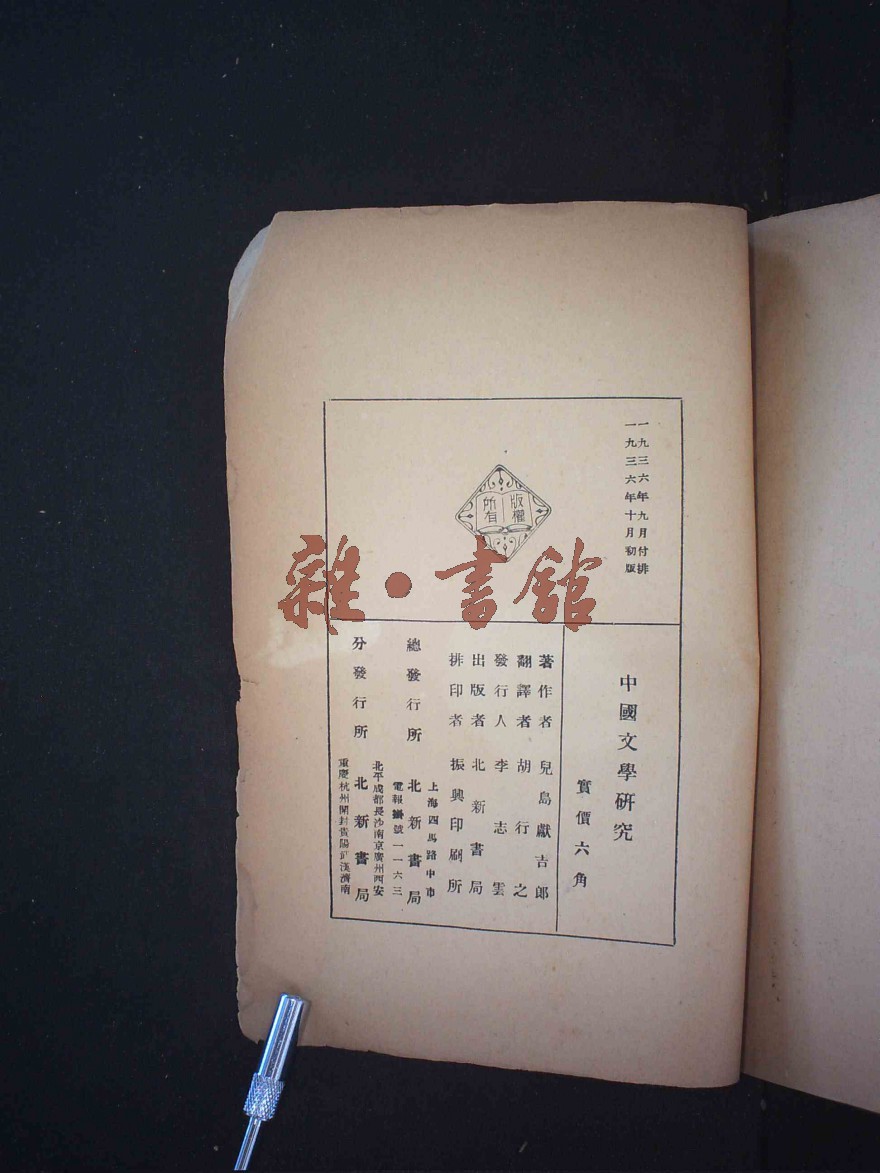 一九三六年九月付排
一九三六年十月初版
版權
所有
雜·書館
中國文學研究
實價六角
著作者 兒島獻吉郎
翻譯者 胡行之
發行人 李志雲
出版者 北新書局
排印者 振興印刷所
上海四馬路中市
總發行所 北新書局
電報掛號一一六三
北平成都長沙南京廣州西安
分發行所 北新書局
重慶杭州開封貴陽武漢濟南